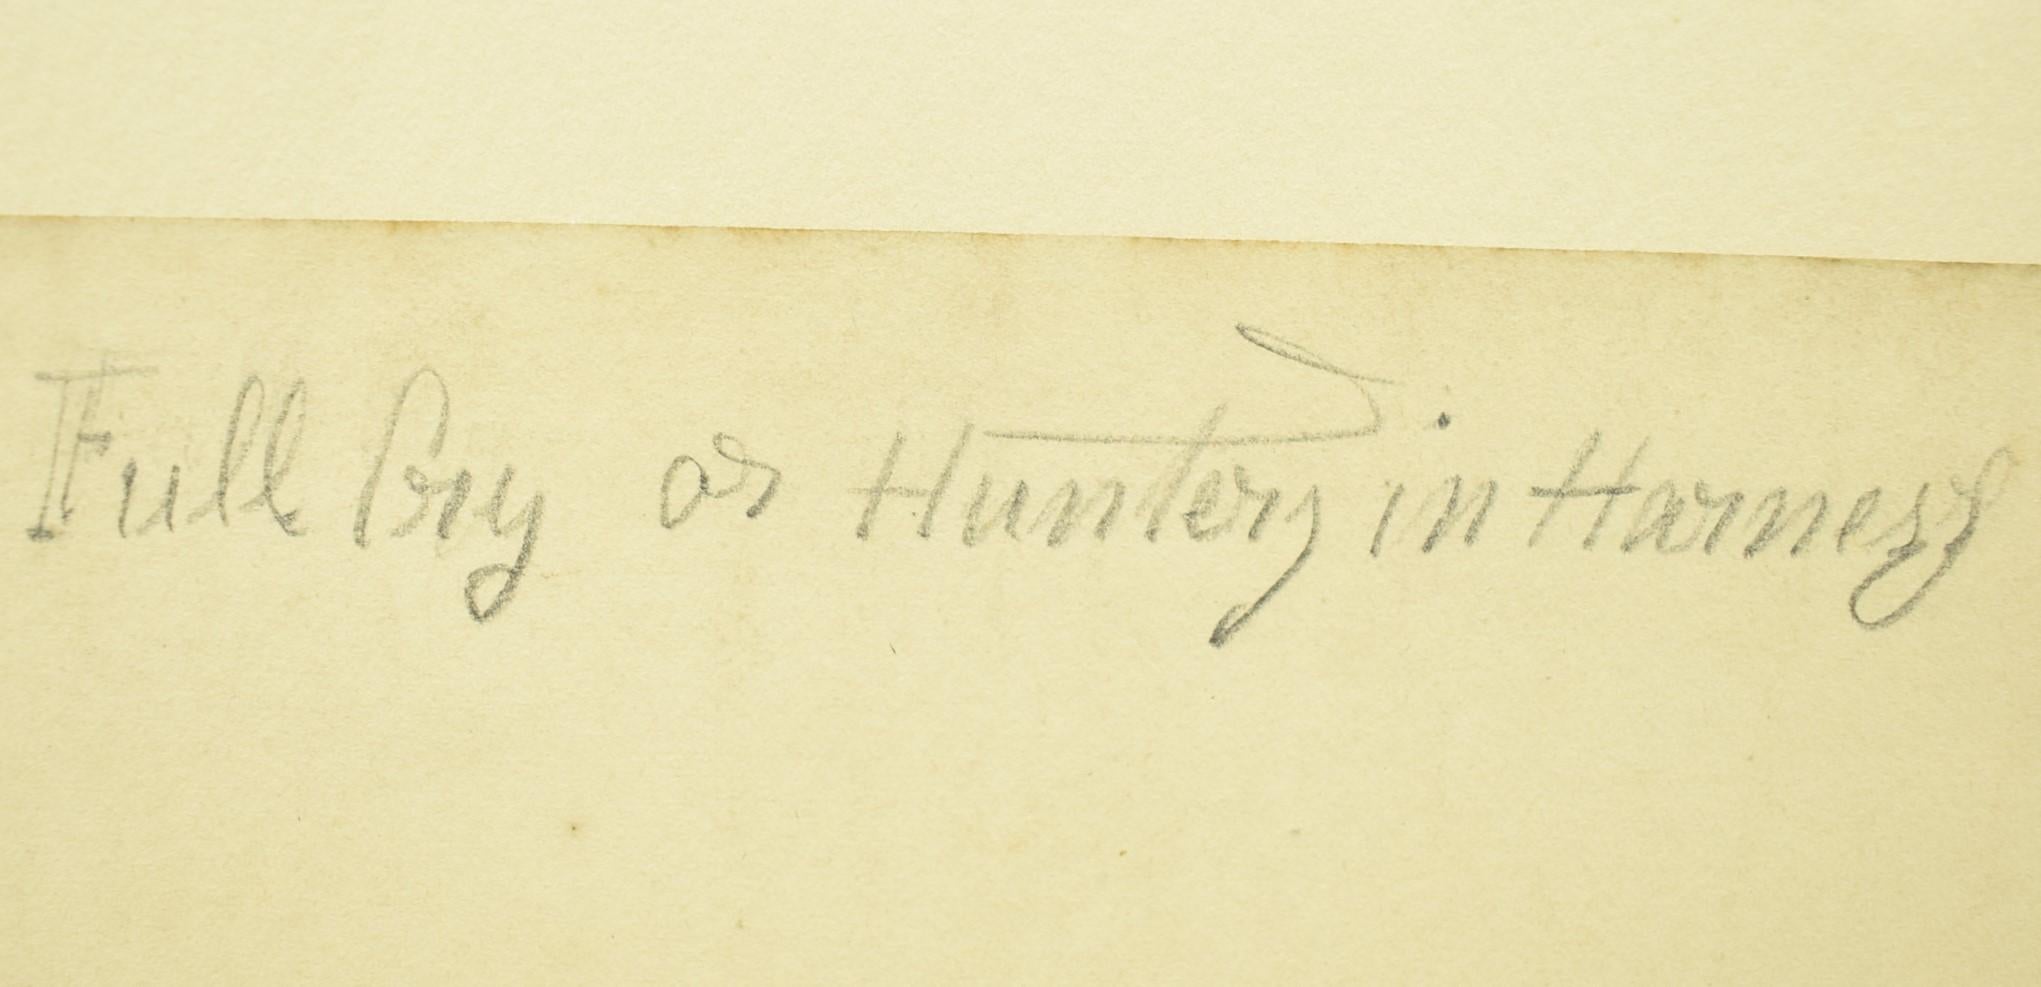 Full Cry or Hunters in Harness